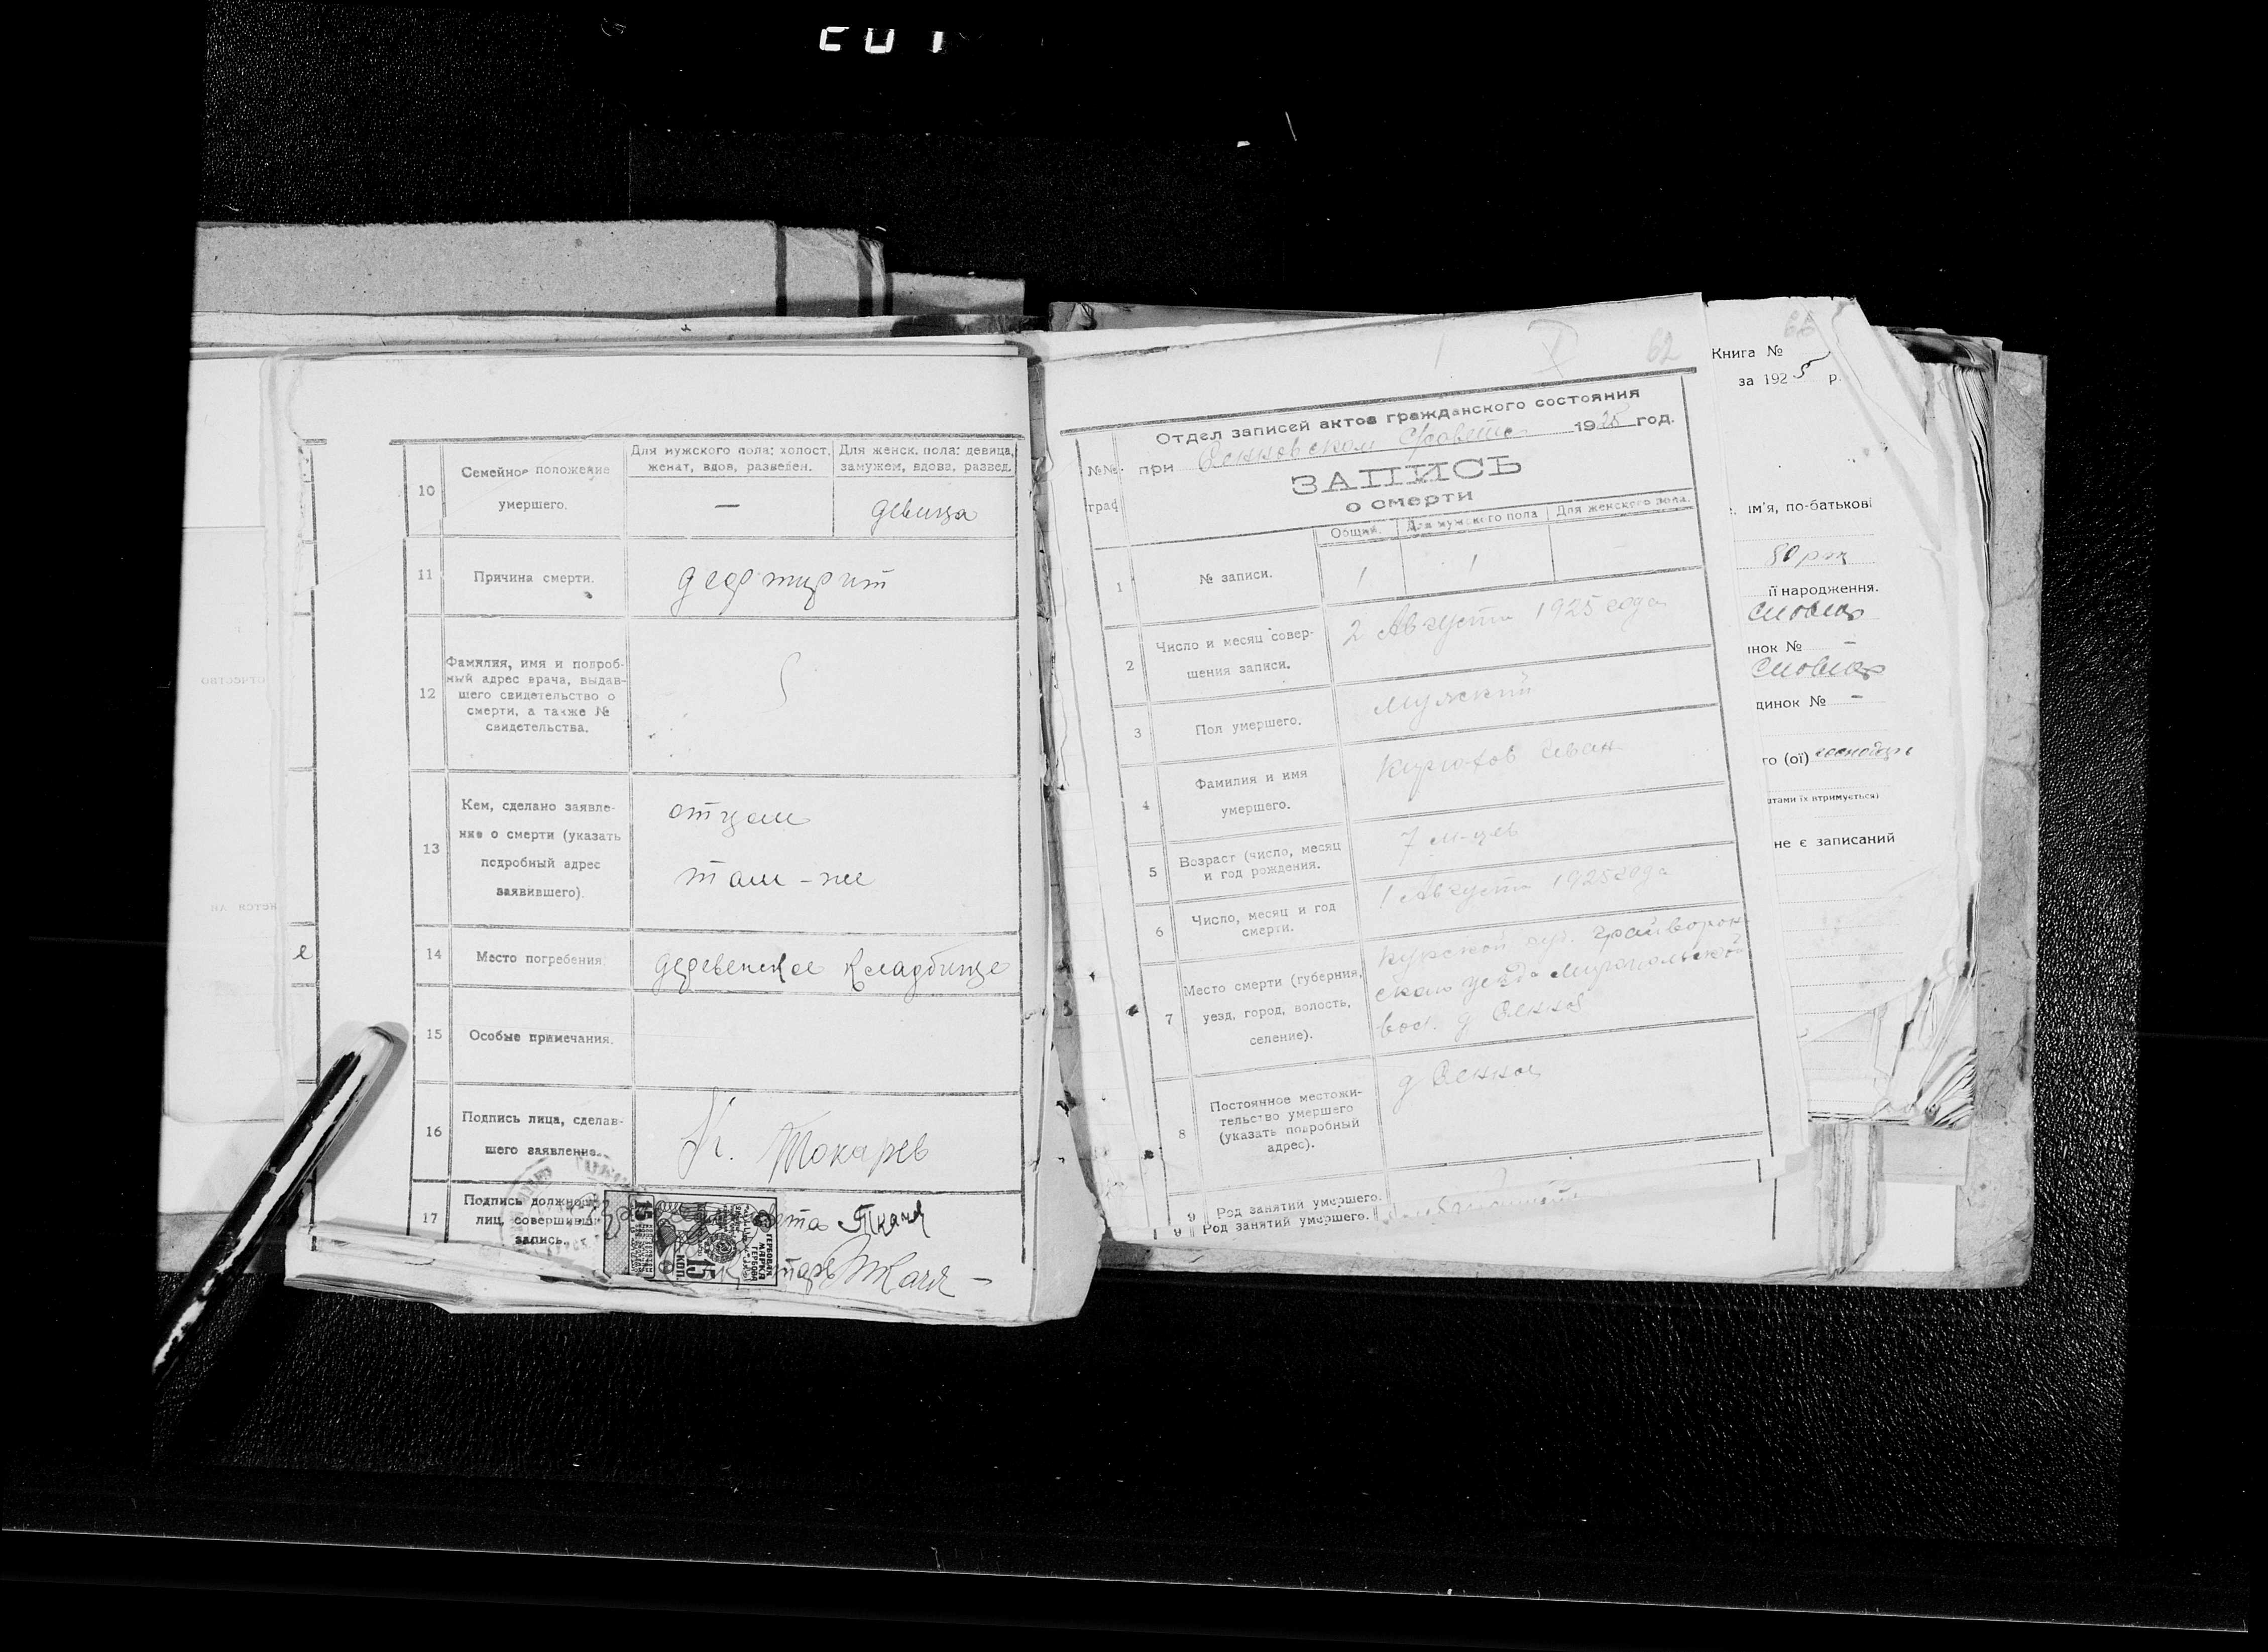 10
Семейное положение
умершего.
Для мужского пола: холост,
женат, вдов, разведен.
Для женск. пола: девица,
замужем, вдова, развед.
—
девица
11
Причина смерти.
дефтирит
12
Фамилия, имя и подроб-
ный адрес врача, выдав-
шего свидетельство о
смерти, а также №
свидетельства.
13
Кем, сделано заявле-
ние о смерти (указать
подробный адрес
заявившего).
отцом
там-же
14
Место погребения
деревенское кладбище
15
Особые примечания.
16
Подпись лица, сделав-
шего заявление.
К. Токарев
17
Подпись должност
лиц, совершивш
запись.
Ткач
15
КОП
62
Отдел записей актов гражданского состояния
при 1925 год.
№№
граф
ЗАПИСЬ
о смерти
Общий. Для мужского пола Для женского пола.
1
№ записи.
1 1 —
2
Число и месяц совер-
шения записи.
2 Августа 1925 года
3
Пол умершего.
мужский
4
Фамилия и имя
умершего.
Кирюхов Иван
5
Возраст (число, месяц
и год рождения.
7 м-цев
6
Число, месяц и год
смерти.
1 Августа 1925 года
7
Место смерти (губерния,
уезд, город, волость,
селение).
Курской губ. Грайворон-
ского уезда Миропольской
вол.
8
Постоянное местожи-
тельство умершего
(указать подробный
адрес).
9
Род занятий умершего.
9 Род занятий умершего.
Книга №
за 1925 р.
ім'я, по-батькові
її народження.
нок №
динок №
го (ої)
штами їх втримується)
не є записаний